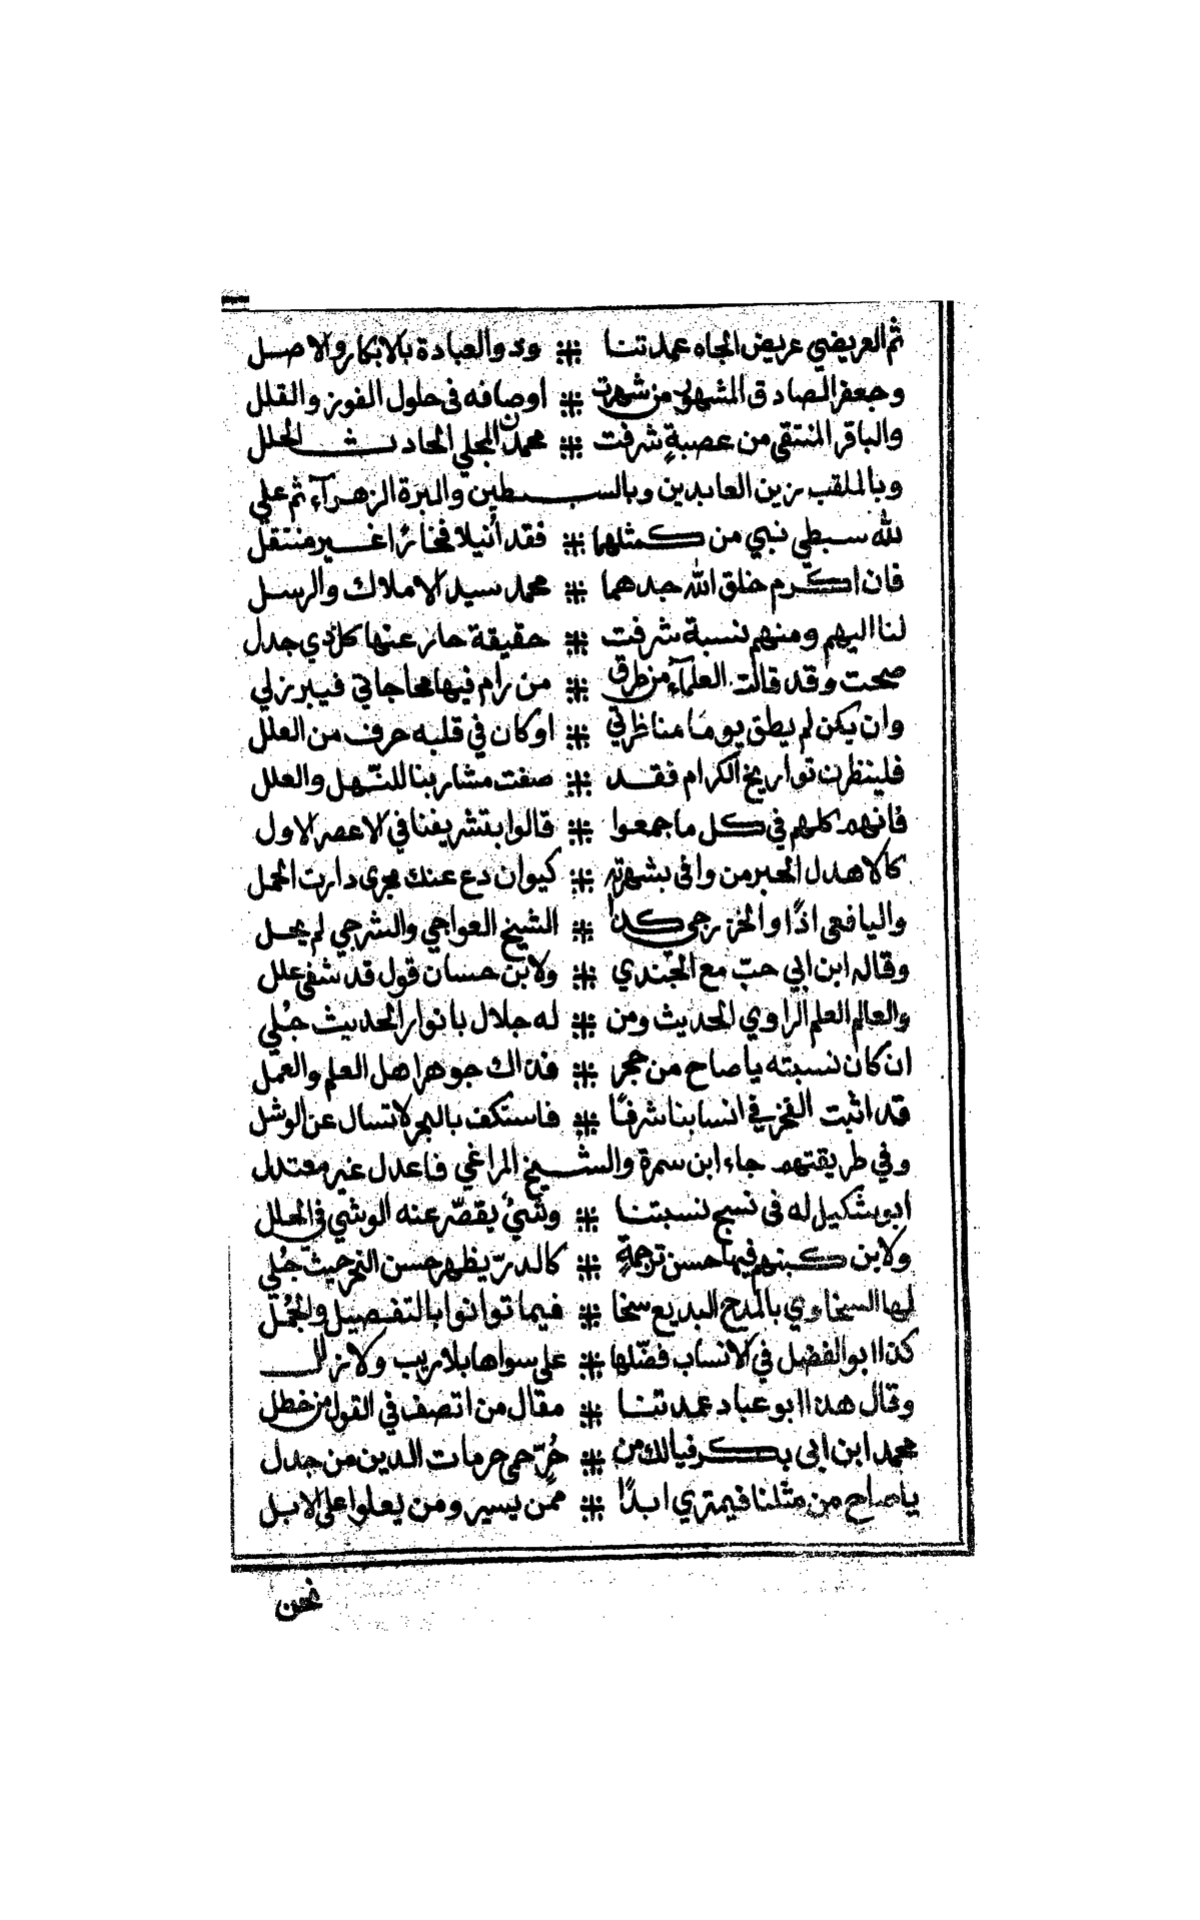 ثم العريضي عريض الجاه عمدتنا ⁜ وذو العبادة بالابكار والاصل
وجعفر الصادق المشهور من شهرت ⁜ اوصافه فى حلول الفوز والقلل
والباقر المنتقى من عصبةٍ شرفت ⁜ محمدن المجلي الحادث الجلل
وبالملقب زين العابدين وبالسبطين والبرة الزهرآء ثم علي
لله سبطي نبي من كمثلهما ⁜ فقد أنيلا فخارًا غير منتقل
فان اكرم خلق الله جدهما ⁜ محمد سيد الاملاك والرسل
لنا اليهم ومنهم نسبة شرفت ⁜ حقيقة حار عنها كل ذي جدل
صحت وقد قالت العلمآء من طرق ⁜ من رام فيها محاجاتي فيبرز لي
وان يكن لم يطق يوما مناظرتي ⁜ او كان في قلبه حرف من العلل
فلينظرن تواريخ الكرام فقد ⁜ صفت مشاربنا للنّهل والعلل
فانهم كلهم في كل ما جمعوا ⁜ قالوا بتشريفنا في الاعصر الاول
كالاهدل الحبر من وافى بشهرته ⁜ كيوان دع عنك مجرى دارت الحمل
واليافعى اذًا والخزرجي كذا ⁜ الشيخ العواجي والشرجي لم يحل
وقاله ابن ابي حبّ مع الجندي ⁜ ولابن حسان قول قد شفى علل
والعالم العلم الراوي الحديث ومن ⁜ له جلال بانوار الحديث جُلي
ان كان نسبته يا صاح من حجر ⁜ فذاك جوهر اهل العلم والعمل
قد اثبت الفخر في انسابنا شرفًا ⁜ فاستكف بالبحر لا تسال عن الوشل
وفي طريقتهم جاء ابن سمرة والشيخ المراغي فاعدل غير معتدل
ابو شكيل له فى نسج نسبتنا ⁜ وشيٌ يقصّر عنه الوشي في الحلل
ولابن كبنهم فيها حسن ترجمةٍ ⁜ كالدرّ يظهر حسن النحر حيث جُلي
لها السخاوي بالمدح البديع سخا ⁜ فيما توانوا بالتفصيل والجُمل
كذا ابو الفضل في الانساب فضّلها ⁜ على سواها بلا ريب ولا زلل
وقال هذا ابو عباد عمدتنا ⁜ مقال من اتصف في القول من خطل
محمد ابن ابى بكر فيالك من ⁜ حُرّ حمى حرمات الدين من جدل
يا صاح من مثلنا فيمتري ابدًا ⁜ ممّن يسير ومن يعلوا على الابل
نحن